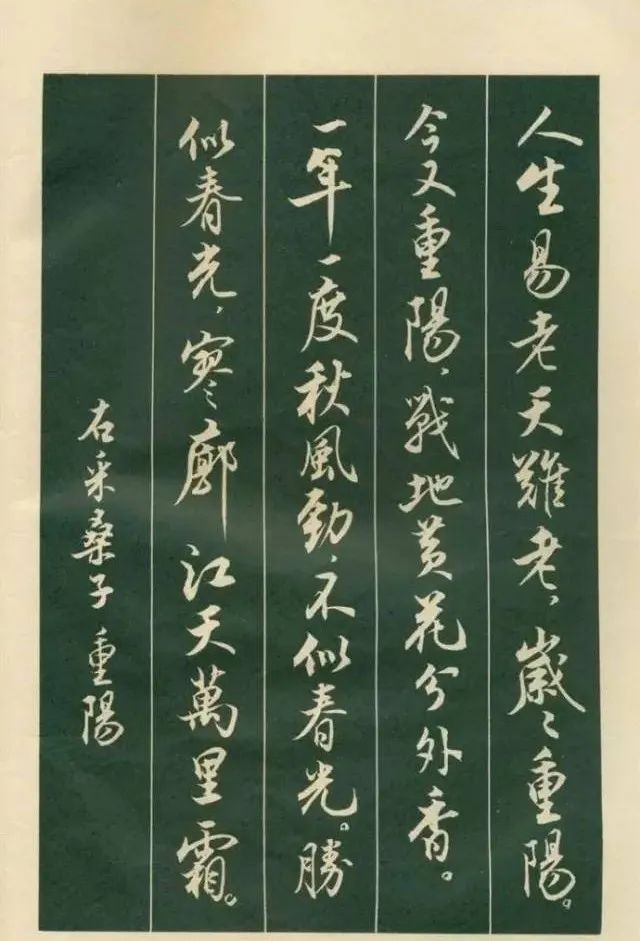 人生易老天難老，歲〻重陽。
今又重陽，戰地黃花分外香。
一年一度秋風勁，不似春光。勝
似春光，寥廓江天萬里霜。
右采桑子 重陽